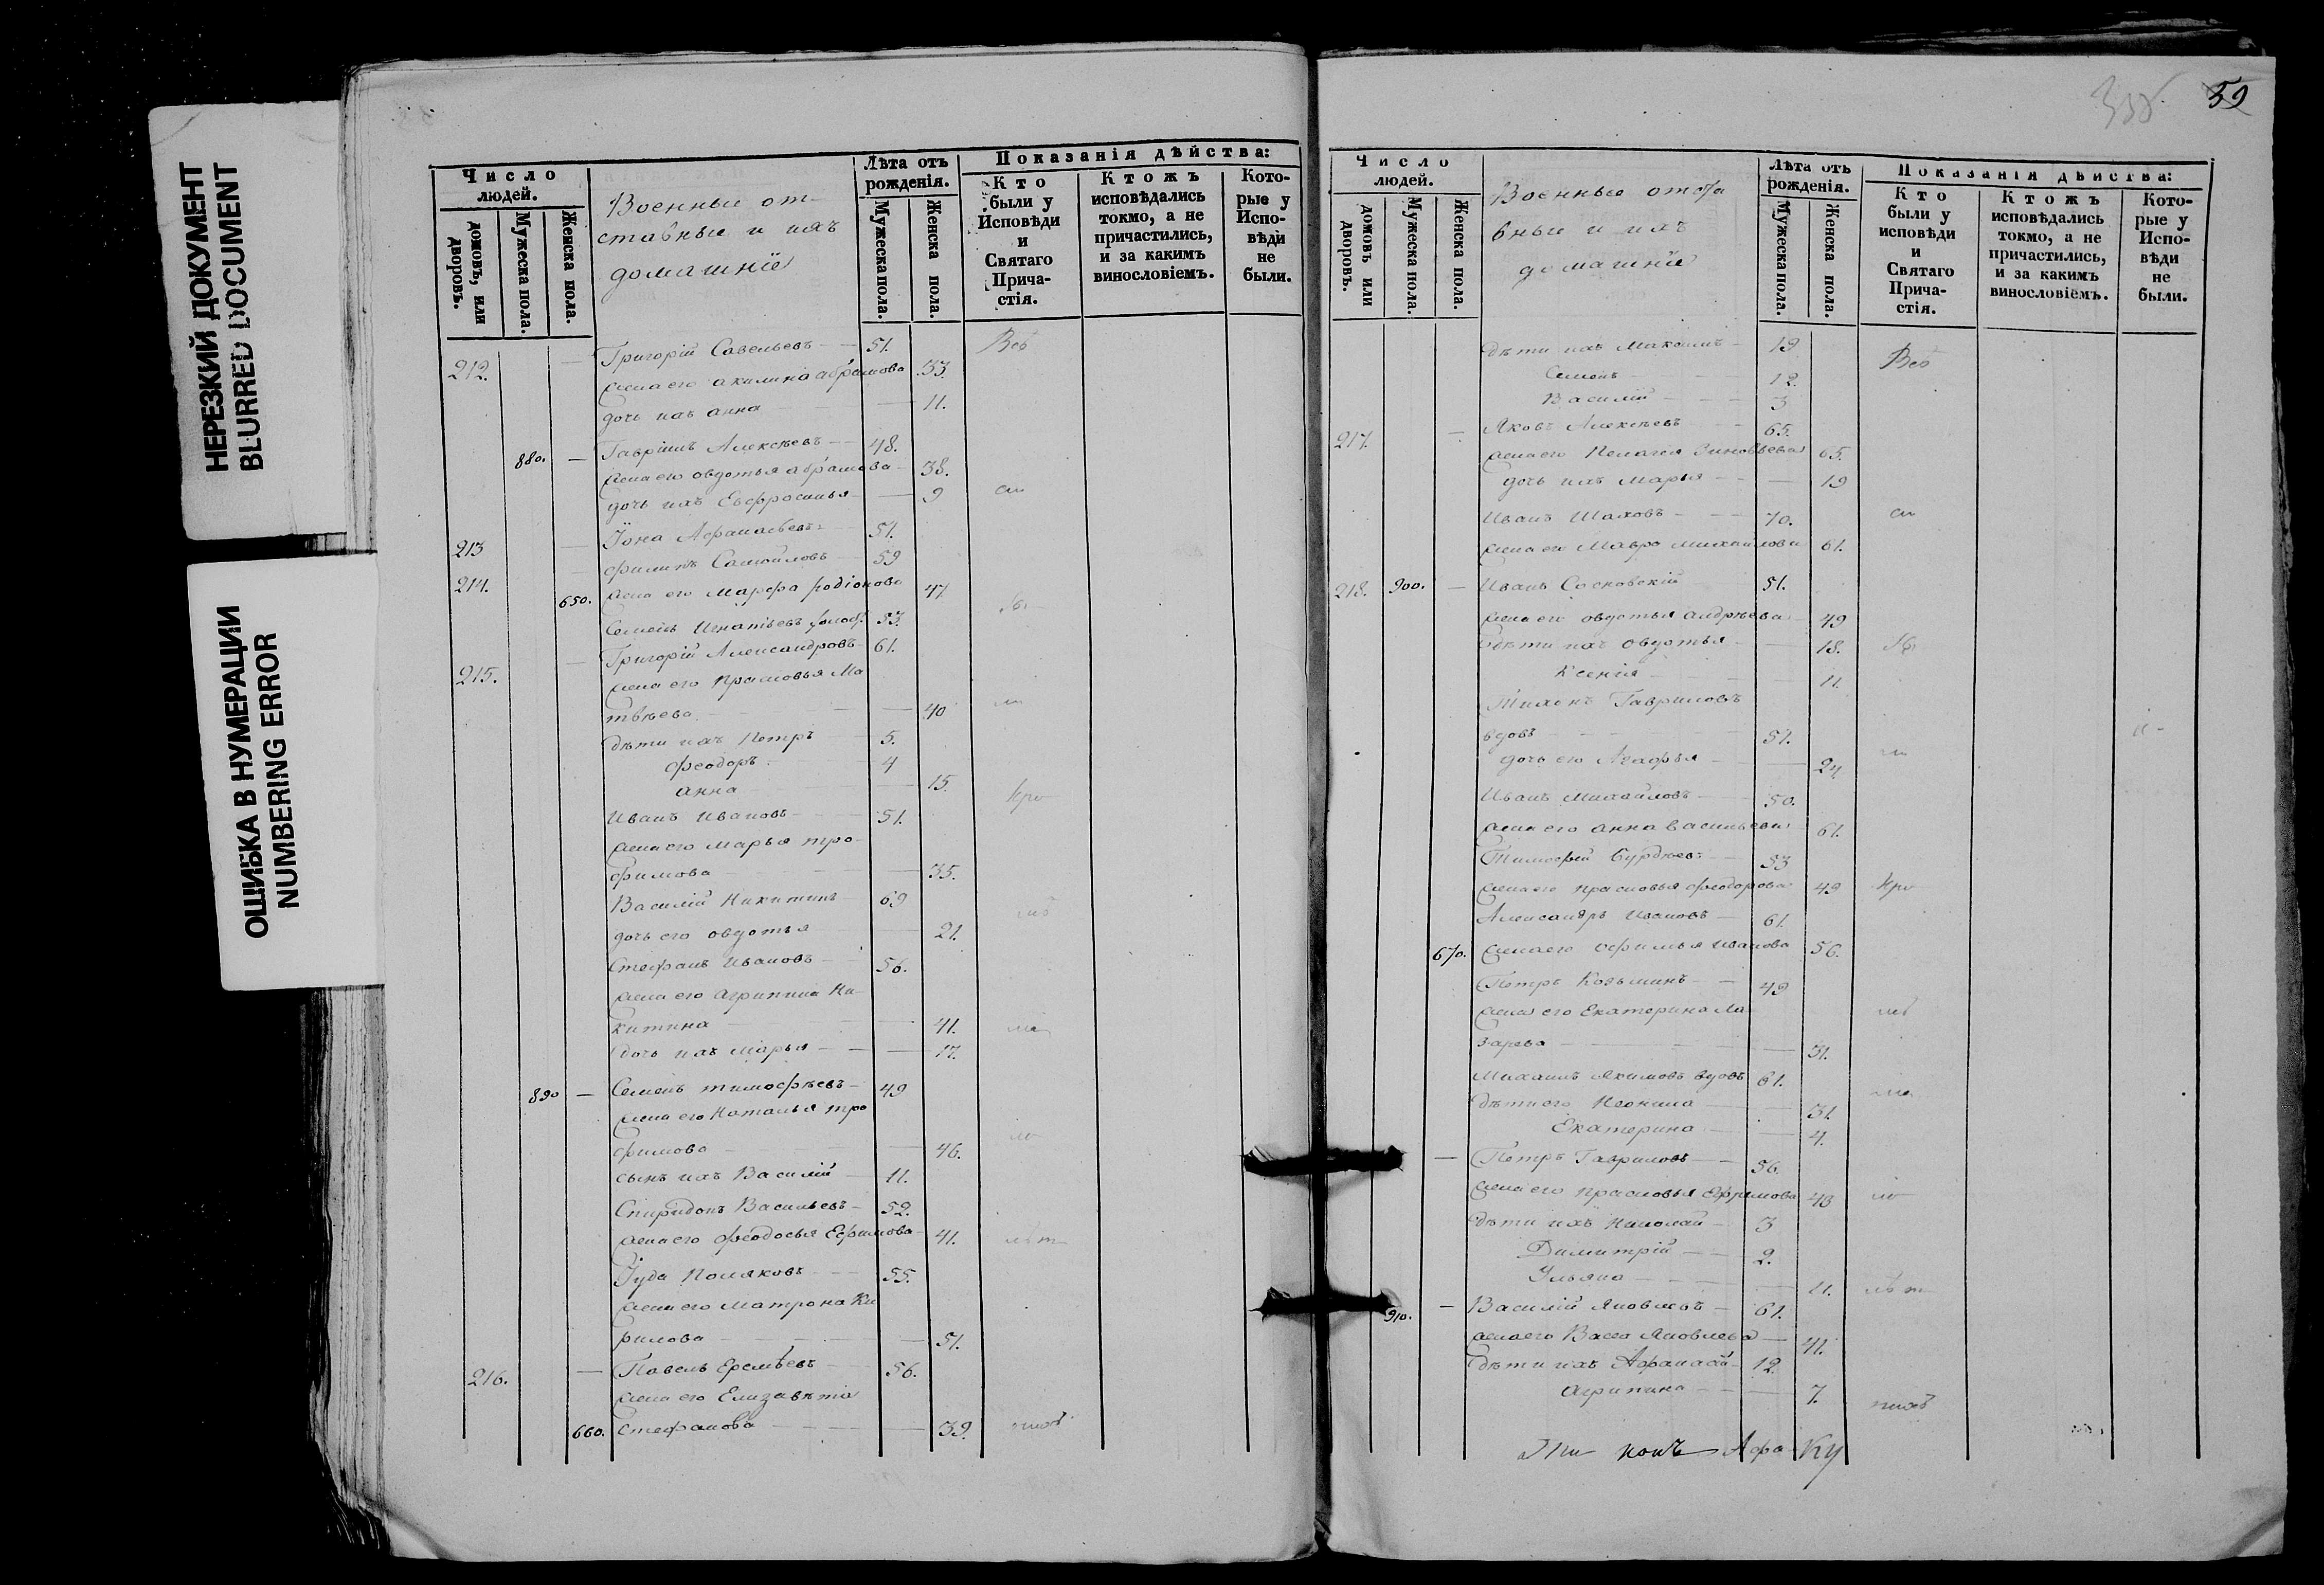 НЕРЕЗКИЙ ДОКУМЕНТ
BLURRED DOCUMENT
ОШИБКА В НУМЕРАЦИИ
NUMBERING ERROR
Число людей.
домовъ, или дворовъ.
Мужеска пола.
Женска пола.
Военные от-
ставные и ихъ
домашніе
Лѣта отъ рожденія.
Мужеска пола.
Женска пола.
Показанія дѣйства:
Кто были у Исповѣди и Святаго Прича-стія.
Ктожъ исповѣдались токмо, а не причастились, и за какимъ винословіемъ.
Кото-рые у Испо-вѣди не были.
212. — Григорій Савельевъ — 51.
жена его акилина абрамова 33.
дочь ихъ анна — 11.
880. — Гавріилъ Алексѣевъ — 48.
жена его овдотья абрамова 38.
дочь ихъ Евфросинья — 9
213 — Іона Афанасьевъ 51.
214. Филипъ Самойловъ 59
650. жена его Марфа родіонова 47
Семенъ Игнатіевъ 53.
215. — Григорій Александровъ 61.
жена его Прасковья Ма
твѣева — 40
дѣти ихъ Петръ 5.
феодоръ 4
анна 15.
Иванъ Ивановъ 51.
жена его Марья тро-
фимова — 35.
Василій Никитинъ 69
дочь его овдотья — 21.
Стефанъ Ивановъ — 56.
жена его агрипина Ни-
китина — 41.
дочь ихъ Марья — 17.
890 — Семенъ тимофѣевъ — 49
жена его Наталья тро
фимова — 46.
сынъ ихъ Василій 11.
Спиридонъ Васильевъ — 52.
жена его феодосья Ефимова 41.
Іуда Поляковъ — 55.
жена его Матрона Ки
рилова — 51.
216. — Павелъ Еремѣевъ 56.
жена его Елизавѣта
660. Стефанова — 39.
59
Число людей.
домовъ или дворовъ.
Мужеска пола.
Женска пола.
Военные отста
вные и ихъ
домашніе
Лѣта отъ рожденія.
Мужеска пола.
Женска пола.
Показанія дѣйства:
Кто были у исповѣди и Святаго Прича-стія.
Ктожъ исповѣдались токмо, а не причастились, и за какимъ винословіемъ.
Кото-рые у Испо-вѣди не были.
дѣти ихъ Максимъ — 19
Семенъ 12.
Василій — 3
217. — Яковъ Алексѣевъ — 65.
жена его Пелагея Зиновьева 65.
дочь ихъ Марья — 19
Иванъ Шаховъ — 70.
жена его Мавра Михайлова 61.
218. 900. — Иванъ Сосновскій 51.
жена его овдотья андрѣева 49
дѣти ихъ овдотья — 18.
Ксенія — 11.
Тихонъ Гавриловъ
вдовъ — 51.
дочь его Агафья — 24
Иванъ Михайловъ 50.
жена его анна васильева 61.
Тимофей 53
жена его прасковья феодорова 49
Александръ Ивановъ — 61.
670. жена его Офимья Иванова 56.
Петръ Козьминъ — 49
жена его Екатерина Ла
зарева — 31.
Михаилъ Якимовъ вдовъ 61.
дѣти его Неонила — 31.
Екатерина — 4.
— Петръ Гавриловъ — 56.
жена его прасковья Ефимова 43
дѣти ихъ Николай — 3
Димитрій — 2.
Ульяна — 11.
910. — Василій Яковлевъ — 61.
жена его Васса Яковлева — 41.
дѣти ихъ Афанасій — 12.
агрипина — 7.